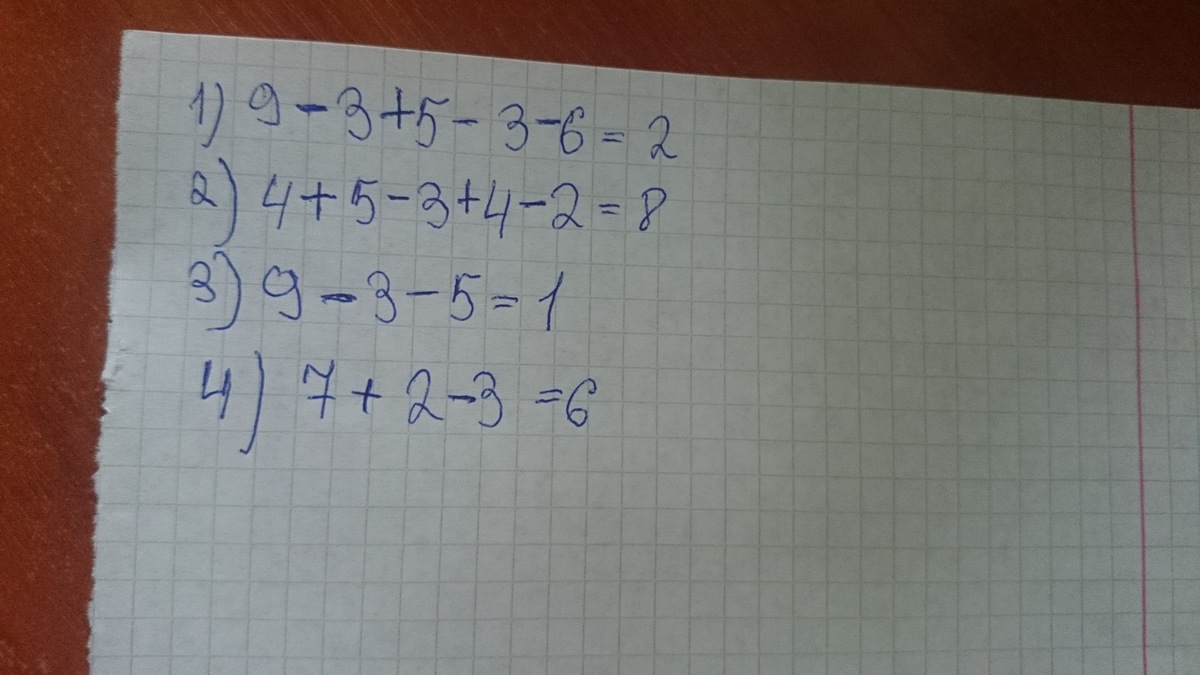 1) 9-3+5-3-6=2
2) 4+5-3+4-2=8
3) 9-3-5=1
4) 7+2-3=6